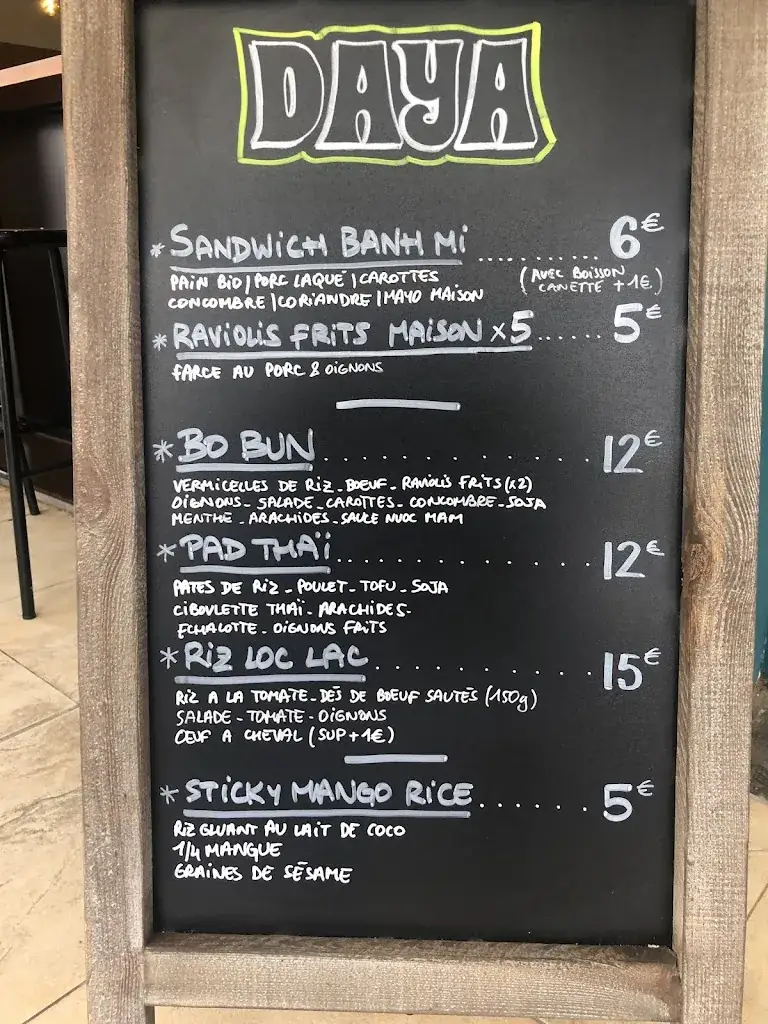 DAYA
* SANDWICH BANH Mi ......... 6€
PAIN BIO | PORC LAQUÉ | CAROTTES (AVEC BOISSON
CONCOMBRE | CORIANDRE | MAYO MAISON CANETTE +1€)
* RAVIOLIS FRITS MAISON x5 ...... 5€
FARCE AU PORC & OIGNONS
* BO BUN ............... 12€
VERMICELLES DE RIZ - BOEUF - RAVIOLIS FRITS (x2)
OIGNONS - SALADE - CAROTTES - CONCOMBRE - SOJA
MENTHE - ARACHIDES - SAUCE NUOC MAM
* PAD THAÏ .............. 12€
PATES DE RIZ - POULET - TOFU - SOJA
CIBOULETTE THAÏ - ARACHIDES -
ECHALOTTE - OIGNONS FRITS
* RIZ LOC LAC ............ 15€
RIZ A LA TOMATE - DÉS DE BOEUF SAUTÉS (150g)
SALADE - TOMATE - OIGNONS
OEUF A CHEVAL (SUP +1€)
* STICKY MANGO RICE ....... 5€
RIZ GLUANT AU LAIT DE COCO
1/4 MANGUE
GRAINES DE SÉSAME